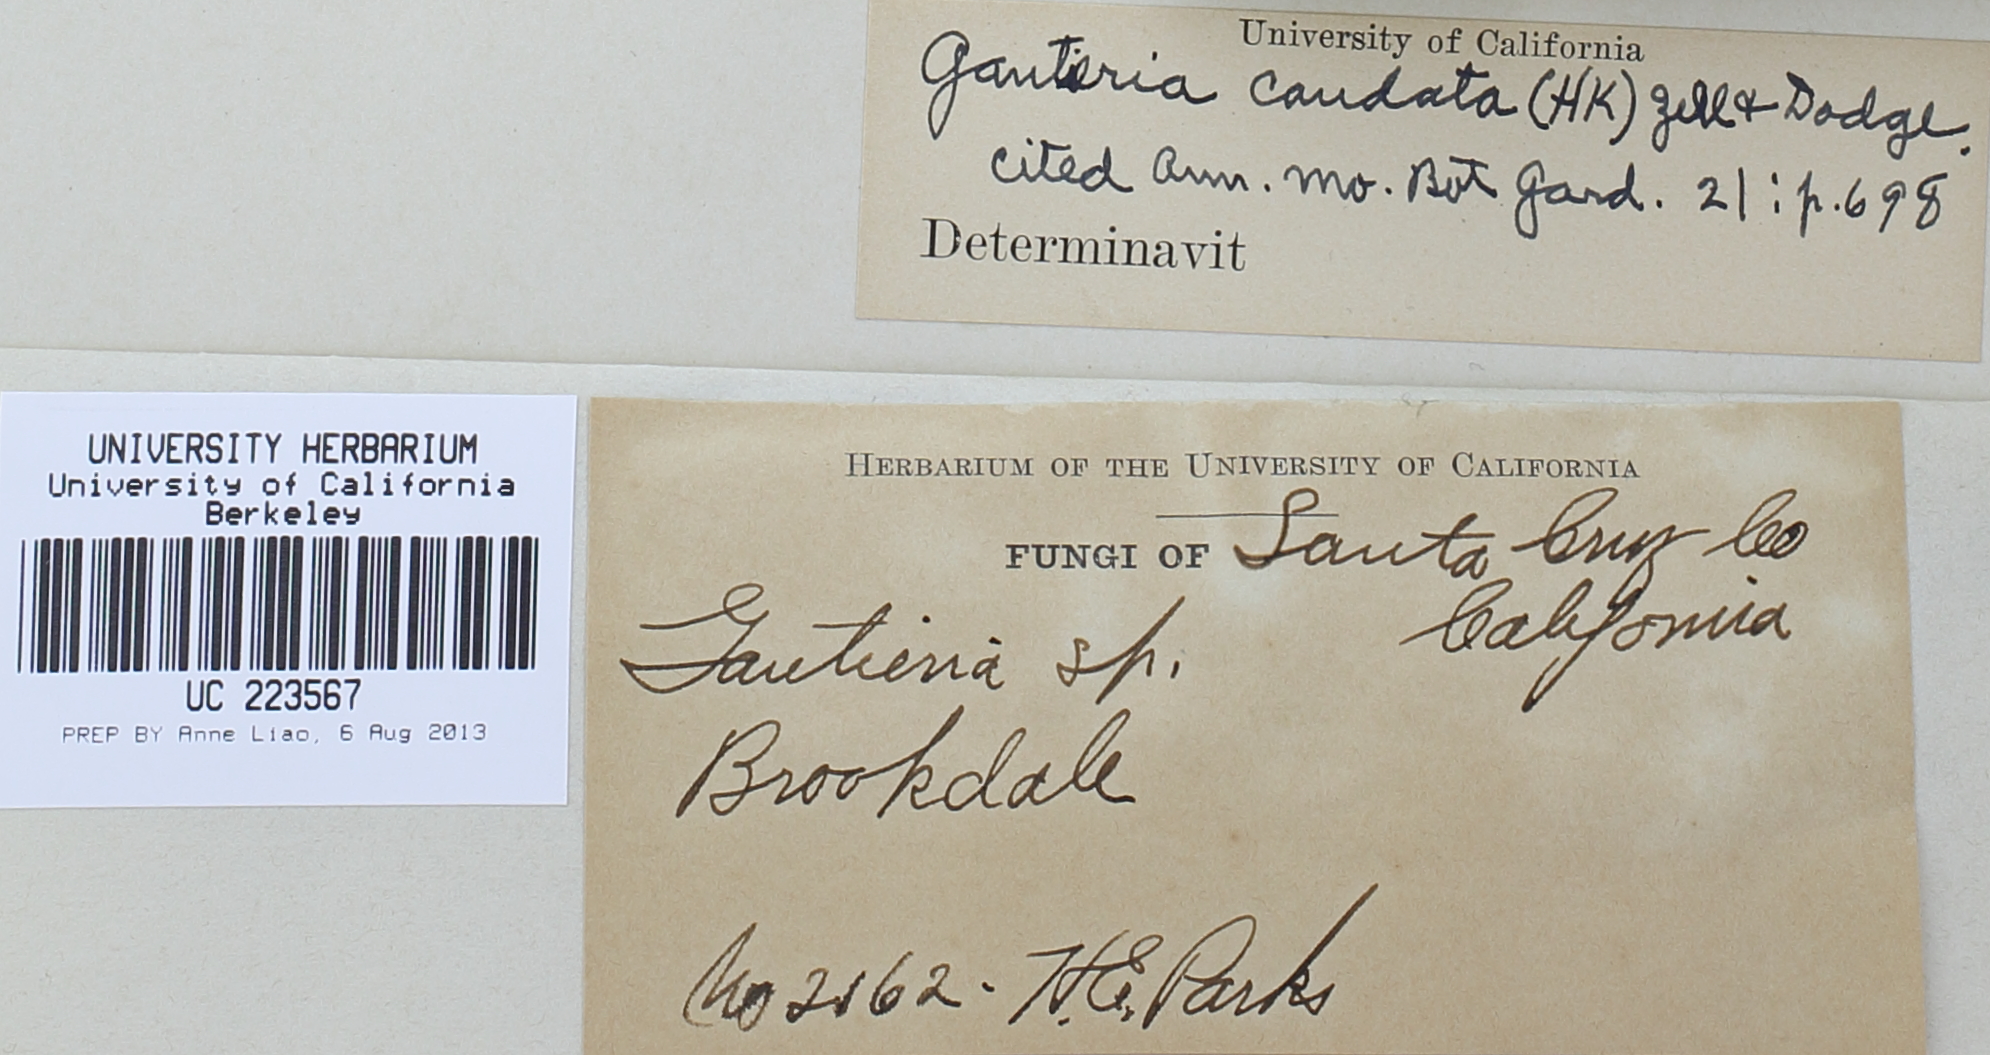 University of California
Gautieria caudata (HK) Zell & Dodge.
cited Ann. Mo. Bot Gard. 21 : p. 698
Determinavit
UNIVERSITY HERBARIUM
University of California
Berkeley
UC 223567
PREP BY Anne Liao, 6 Aug 2013
HERBARIUM OF THE UNIVERSITY OF CALIFORNIA
FUNGI OF Santa Cruz Co
California
Gautieria sp.
Brookdale
No 2162. H.E. Parks